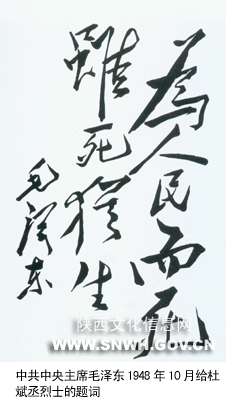 為人民而死
雖死猶生
毛泽东
陕西文化信息网
WWW.SNWH.GOV.CN
中共中央主席毛泽东 1948 年 10 月给杜
斌丞烈士的题词